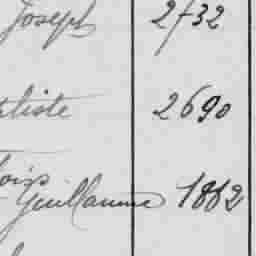 Joseph 2732
tiste 2690
ois
Guillaume 1882